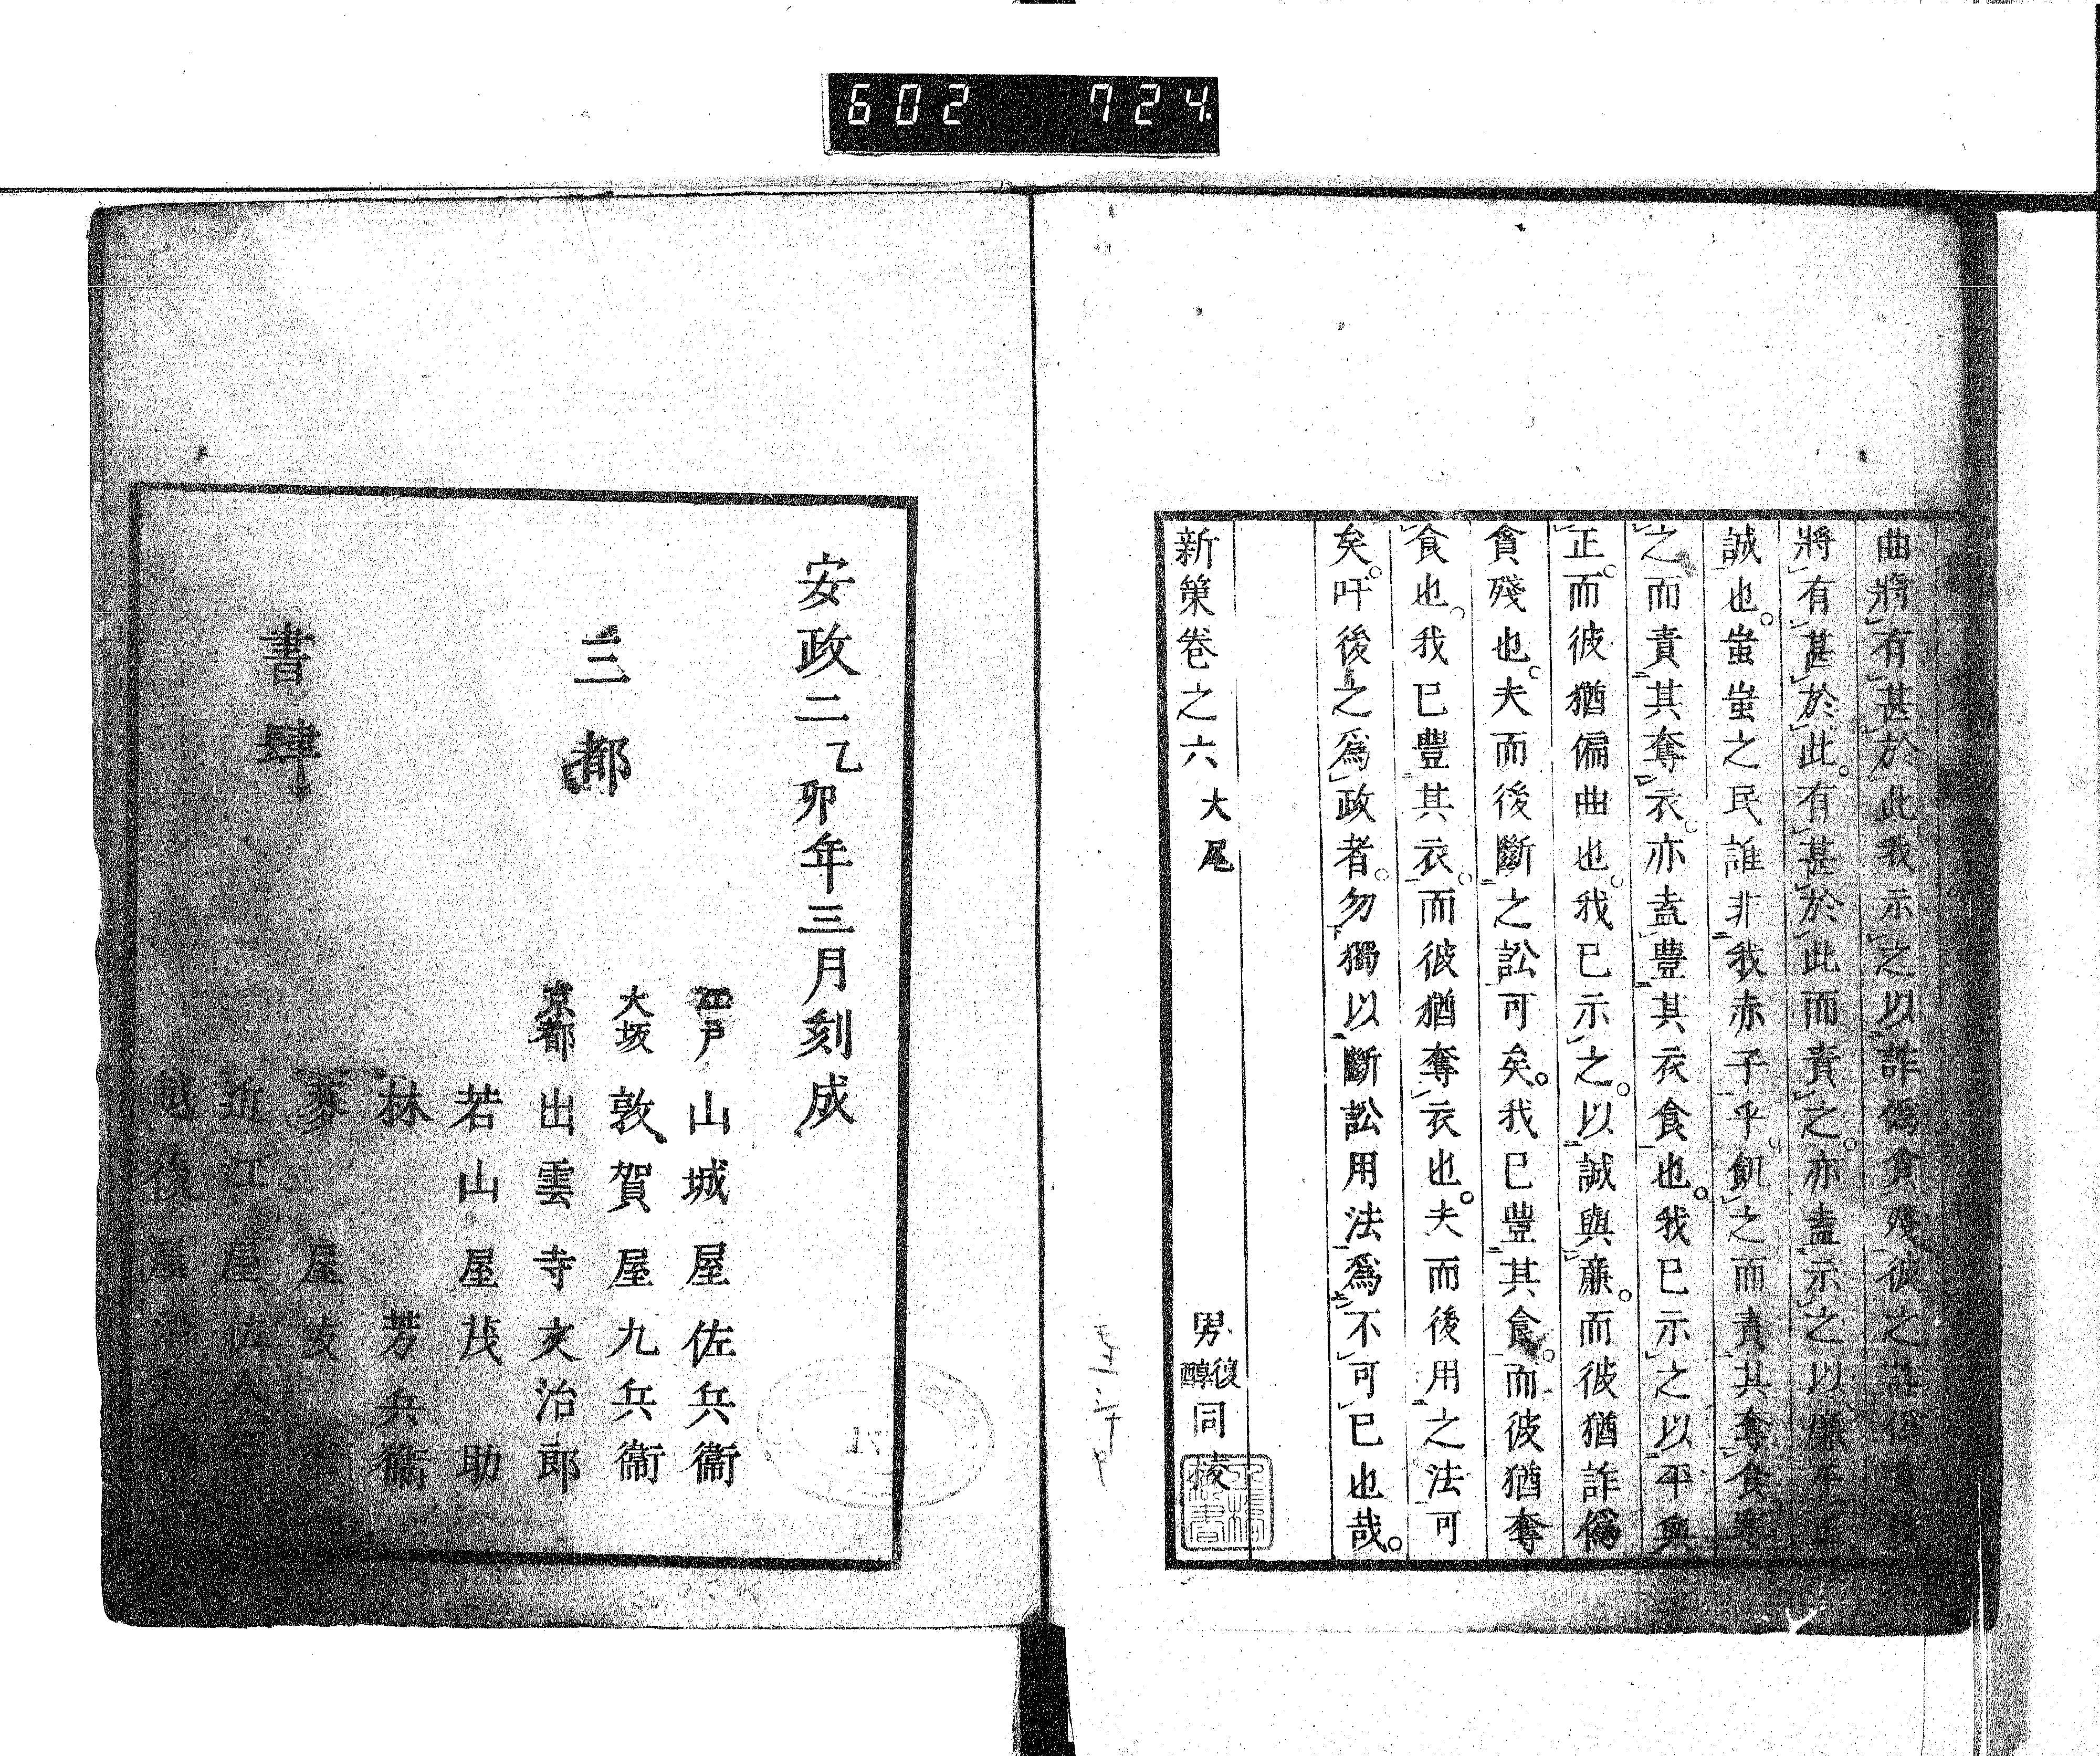 602 724
曲將有甚於此我示之以詐僞貪殘彼之詐僞
將有甚於此。有甚於此而責之。亦盍示之以廉平正
誠也。蚩蚩之民誰非我赤子乎。飢之而責其奪食寒
之而責其奪衣。亦盍豐其衣食也。我已示之以平與
正。而彼猶偏曲也。我已示之。以誠與廉。而彼猶詐僞
貪殘也。夫而後斷之訟可矣。我已豐其食。而彼猶奪
食也。我已豐其衣。而彼猶奪衣也。夫而後用之法可
矣。吁後之爲政者。勿獨以斷訟用法爲不可已也哉。
新策卷之六 大尾 男 復 醇 同 校
安政二乙卯年三月刻成
三都
書肆
江戸 山城屋佐兵衞
大坂 敦賀屋九兵衞
京都 出雲寺文治郎
若山屋茂助
林 芳兵衞
近江屋佐
越後屋